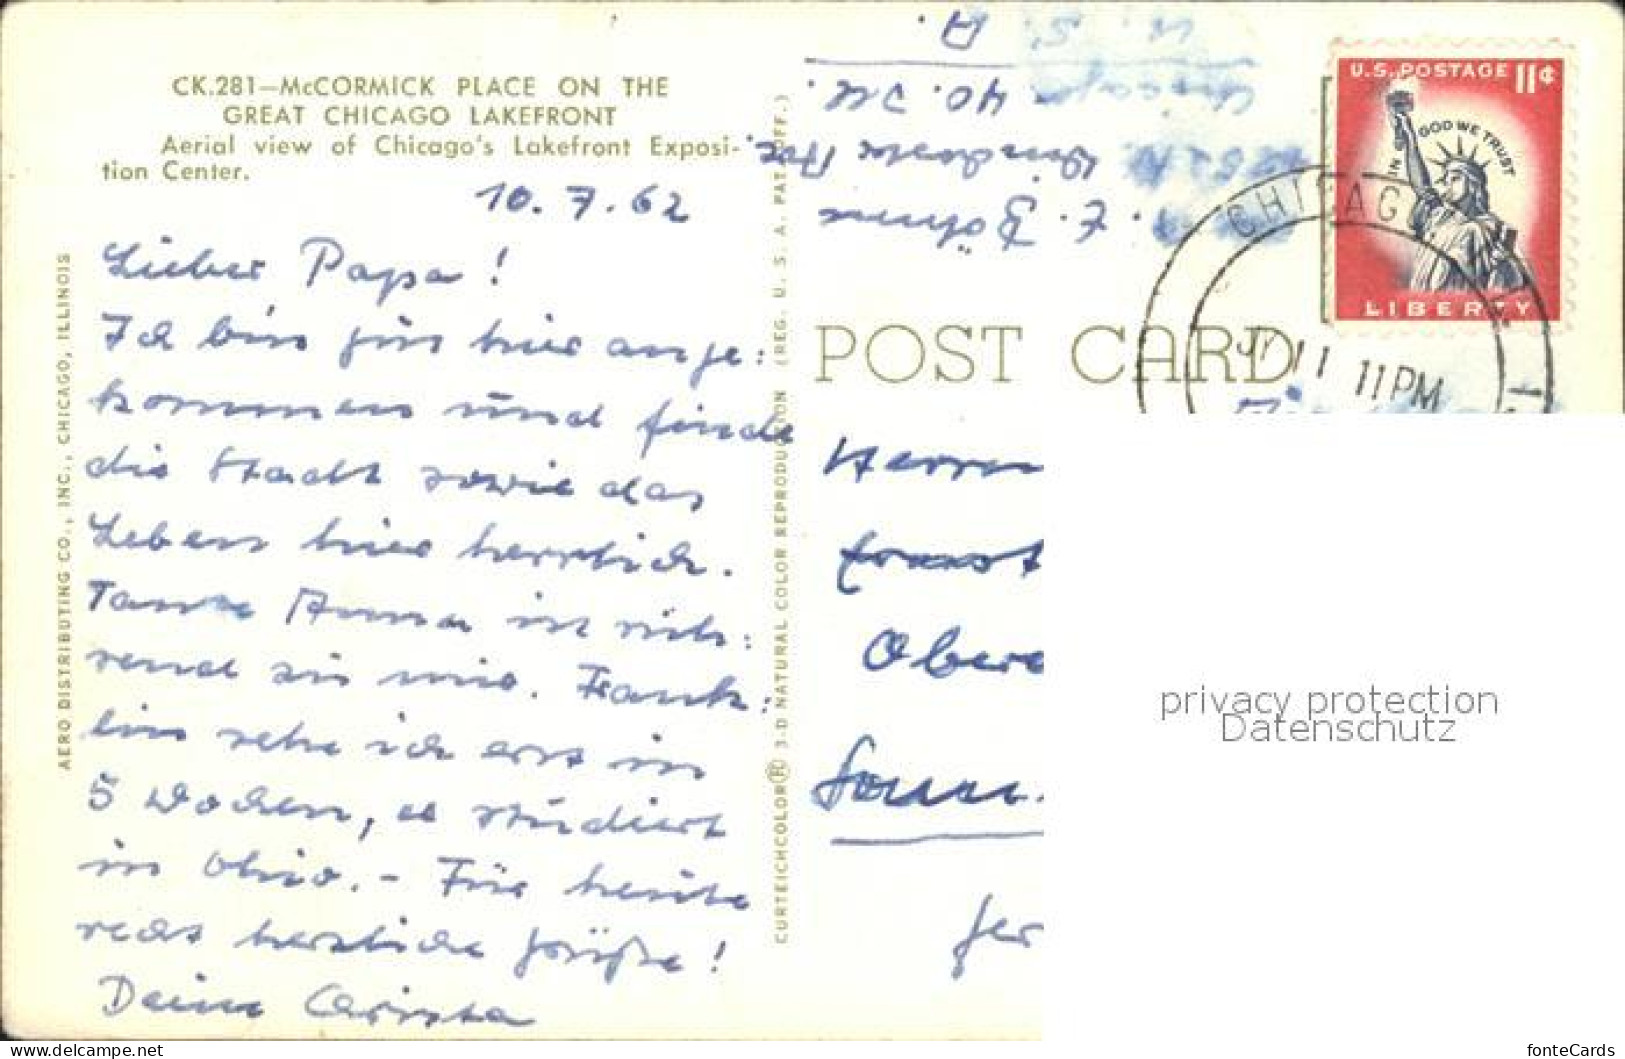 CK.281—McCORMICK PLACE ON THE
GREAT CHICAGO LAKEFRONT
Aerial view of Chicago's Lakefront Exposi-
tion Center.
10.7.62
Lieber Papa!
Ich bin gut hier ange:
kommen und finde
die Stadt sowie das
Leben hier herrlich.
Tante Anna ist rüh:
rend zu mir. Frank:
lin sehe ich erst in
5 Wochen, er studiert
in Ohio. - Für heute
recht herzliche Grüße!
Deine Christa
AERO DISTRIBUTING CO., INC., CHICAGO, ILLINOIS
CURTEICHCOLOR® 3-D NATURAL COLOR REPRODUCTION (REG. U. S. A. PAT. OFF.)
Chicago 40. Ill.
U. S. A.
POST CARD
U.S. POSTAGE 11¢
IN GOD WE TRUST
LIBERTY
CHICAGO
11 11 PM
Herrn
Ernst
Ober
Ger
privacy protection
Datenschutz
delcampe.net
fonteCards